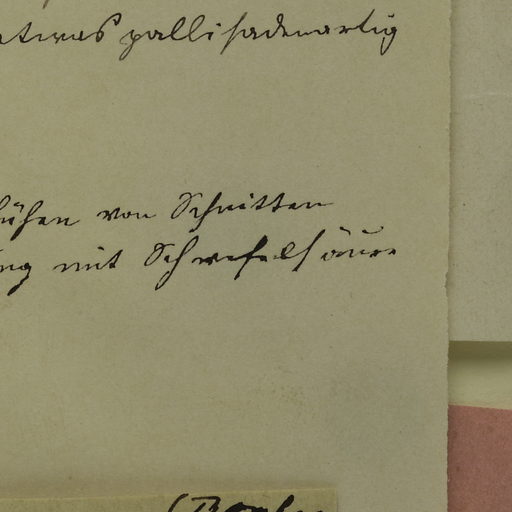 etwas pallisadenartig
lühen von Schnitten
ung mit Schwefelsäure